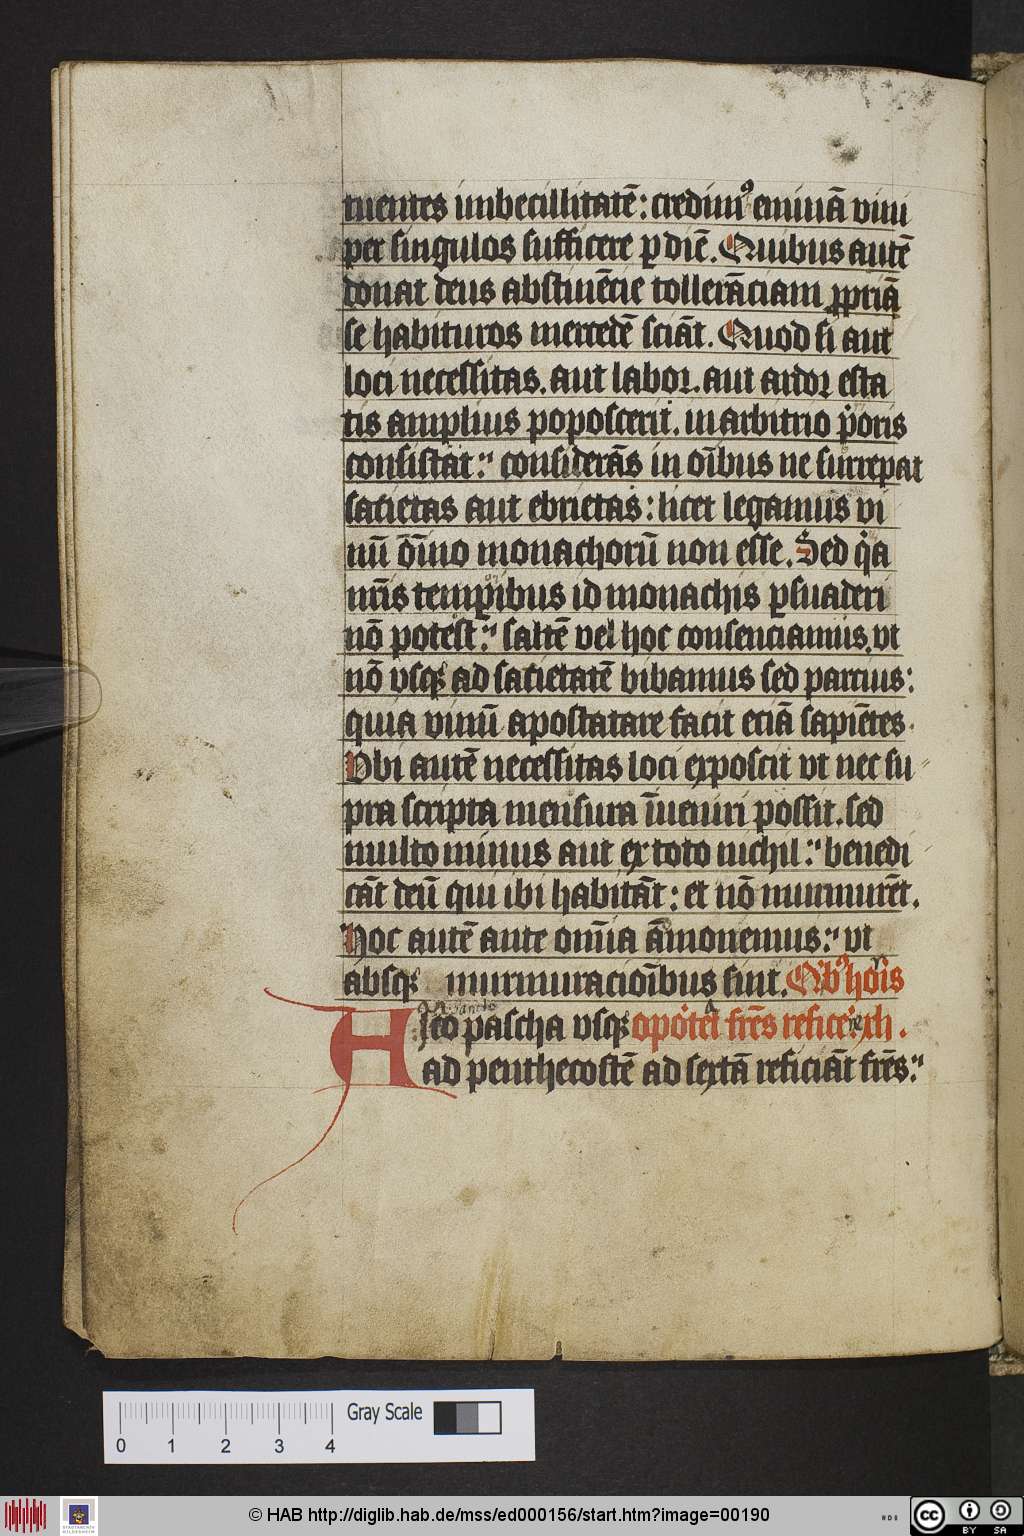 tuentes imbecillitatē: credimꝰ eminā vini
per singulos sufficere ꝑ diē. Quibus autē
donat deus abstinēcie tollerāciam ꝓpriā
se habituros mercedē sciāt. Quod si aut
loci necessitas. aut labor. aut ardor esta
tis amplius poposcerit. in arbitrio p̄oris
consistat: considerās in oībus ne surrepat
satietas aut ebrietas: licet legamus vi
nū om̄ino monachorū non esse. Sed qͥa
nr̄is temꝑibus id monachis ꝑsuaderi
nō potest: saltē vel hoc consenciamus. vt
nō vsqꝫ ad satietatē bibamus sed parcius:
quia vinū apostatare facit eciā sapiētes.
Vbi autē necessitas loci exposcit vt nec su
pra scripta mensura īueniri possit. sed
multo minus aut ex toto nichil: benedi
cāt deū qui ibi habitāt: et nō murmurēt.
Hoc autē ante om̄ia āmonemus: vt
absqꝫ murmuracioībus sint. Qͥbꝰ horis
A sc̄o pascha vsqꝫ oportet fr̄es reficere
ad penthecostē ad sextā reficiāt fr̄es:
0 1 2 3 4
Gray Scale
© HAB http://diglib.hab.de/mss/ed000156/start.htm?image=00190
cc BY SA